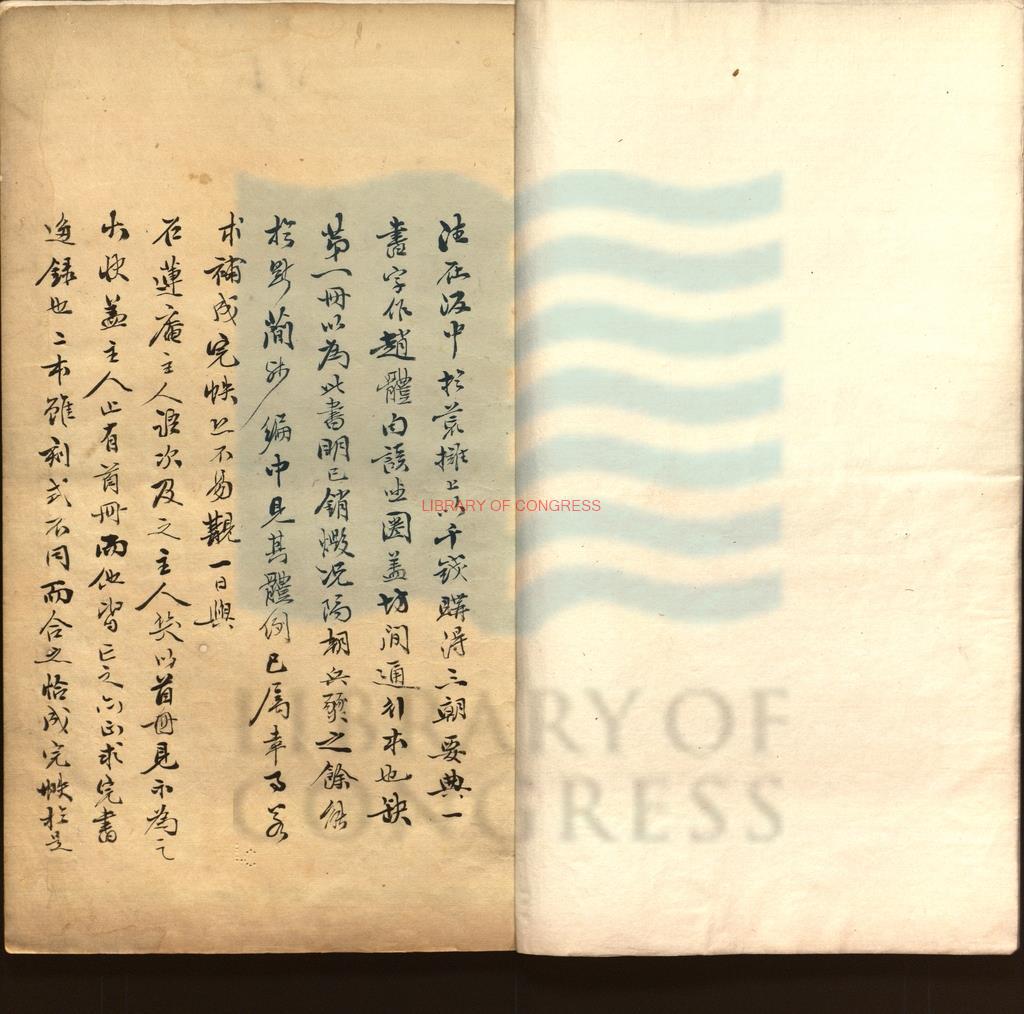 注在汲中於荒攤上以千錢購得三朝要典一
書字作趙體內諼聖圈蓋坊間通行本也缺
第一冊以為此書明已銷燬況隔朝兵燹之餘能
於斷簡殘編中見其體例已屬幸事若
求補成完帙亦不易覯一日與
石蓮庵主人語次及之主人笑以首冊見示為之
大快蓋主人止有首冊而他皆亡之亦正求完書
迻錄也二本雖刻式不同而合之恰成完帙於是
LIBRARY OF CONGRESS
LIBRARY OF
CONGRESS